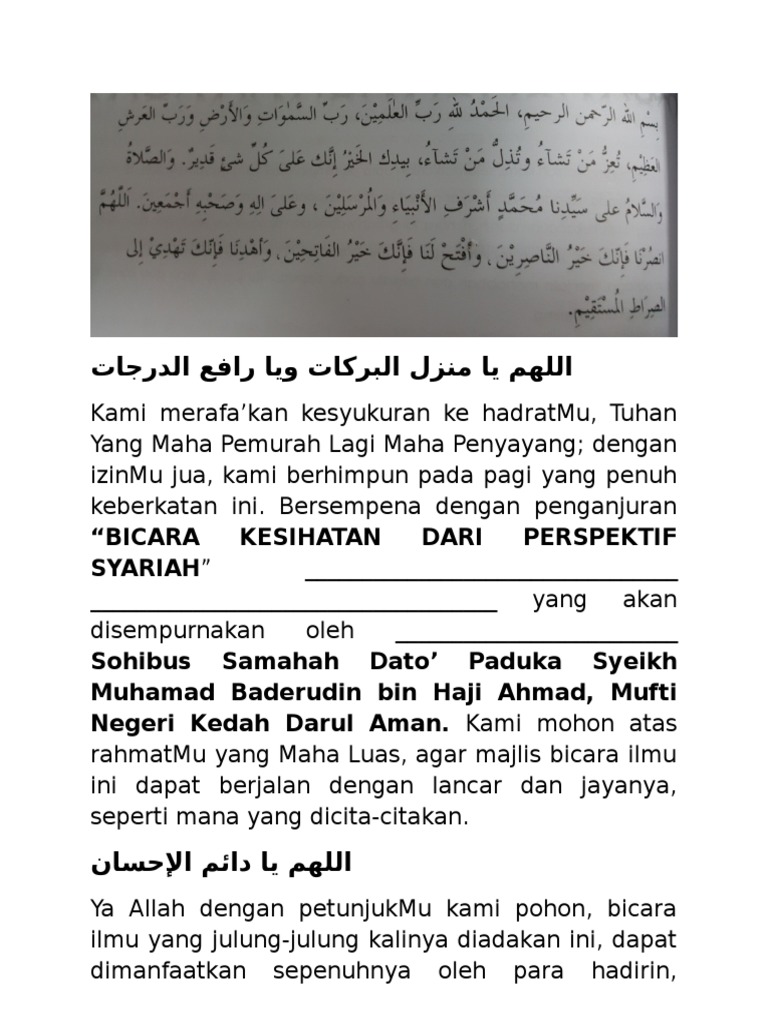 بِسْمِ الله الرّحمن الرحيمِ، الحَمْدُ للهِ رَبِّ العٰلَمِيْنَ، رَبِّ السَّمٰوَاتِ وَالأَرْضِ وَرَبّ العَرشِ
العَظِيْمِ، تُعِزُّ مَنْ تَشآءُ وَتُذِلُّ مَنْ تَشآءُ، بِيدِك الخَيْرُ إِنَّك عَلىَ كُلِّ شئٍ قَدِيْرٌ. وَالصَّلاةُ
وَالسَّلامُ على سَيِّدِنا مُحَمَّدٍ أَشْرَفِ الأَنْبِيَاءِ وَالمُرْسَلِيْنَ ، وعَلىَ الِهِ وَصَحْبِهِ أَجْمَعِينَ. اَللّهُمَّ
انصُرْنَا فَإِنّكَ خَيْرُ النَّاصِرِيْنَ، وَأفْتَحْ لَنَا فَإِنَّكَ خَيْرُ الفَاتِحِيْنَ، وَأهْدِنَا فَإِنّكَ تَهْدِيْ إِلى
الصِرَاطِ المُسْتَقِيْمِ.
اللهم يا منزل البركات ويا رافع الدرجات
Kami merafa’kan kesyukuran ke hadratMu, Tuhan
Yang Maha Pemurah Lagi Maha Penyayang; dengan
izinMu jua, kami berhimpun pada pagi yang penuh
keberkatan ini. Bersempena dengan penganjuran
“BICARA KESIHATAN DARI PERSPEKTIF
SYARIAH” ________________________________
___________________________________ yang akan
disempurnakan oleh ________________________
Sohibus Samahah Dato’ Paduka Syeikh
Muhamad Baderudin bin Haji Ahmad, Mufti
Negeri Kedah Darul Aman. Kami mohon atas
rahmatMu yang Maha Luas, agar majlis bicara ilmu
ini dapat berjalan dengan lancar dan jayanya,
seperti mana yang dicita-citakan.
اللهم يا دائم الإحسان
Ya Allah dengan petunjukMu kami pohon, bicara
ilmu yang julung-julung kalinya diadakan ini, dapat
dimanfaatkan sepenuhnya oleh para hadirin,